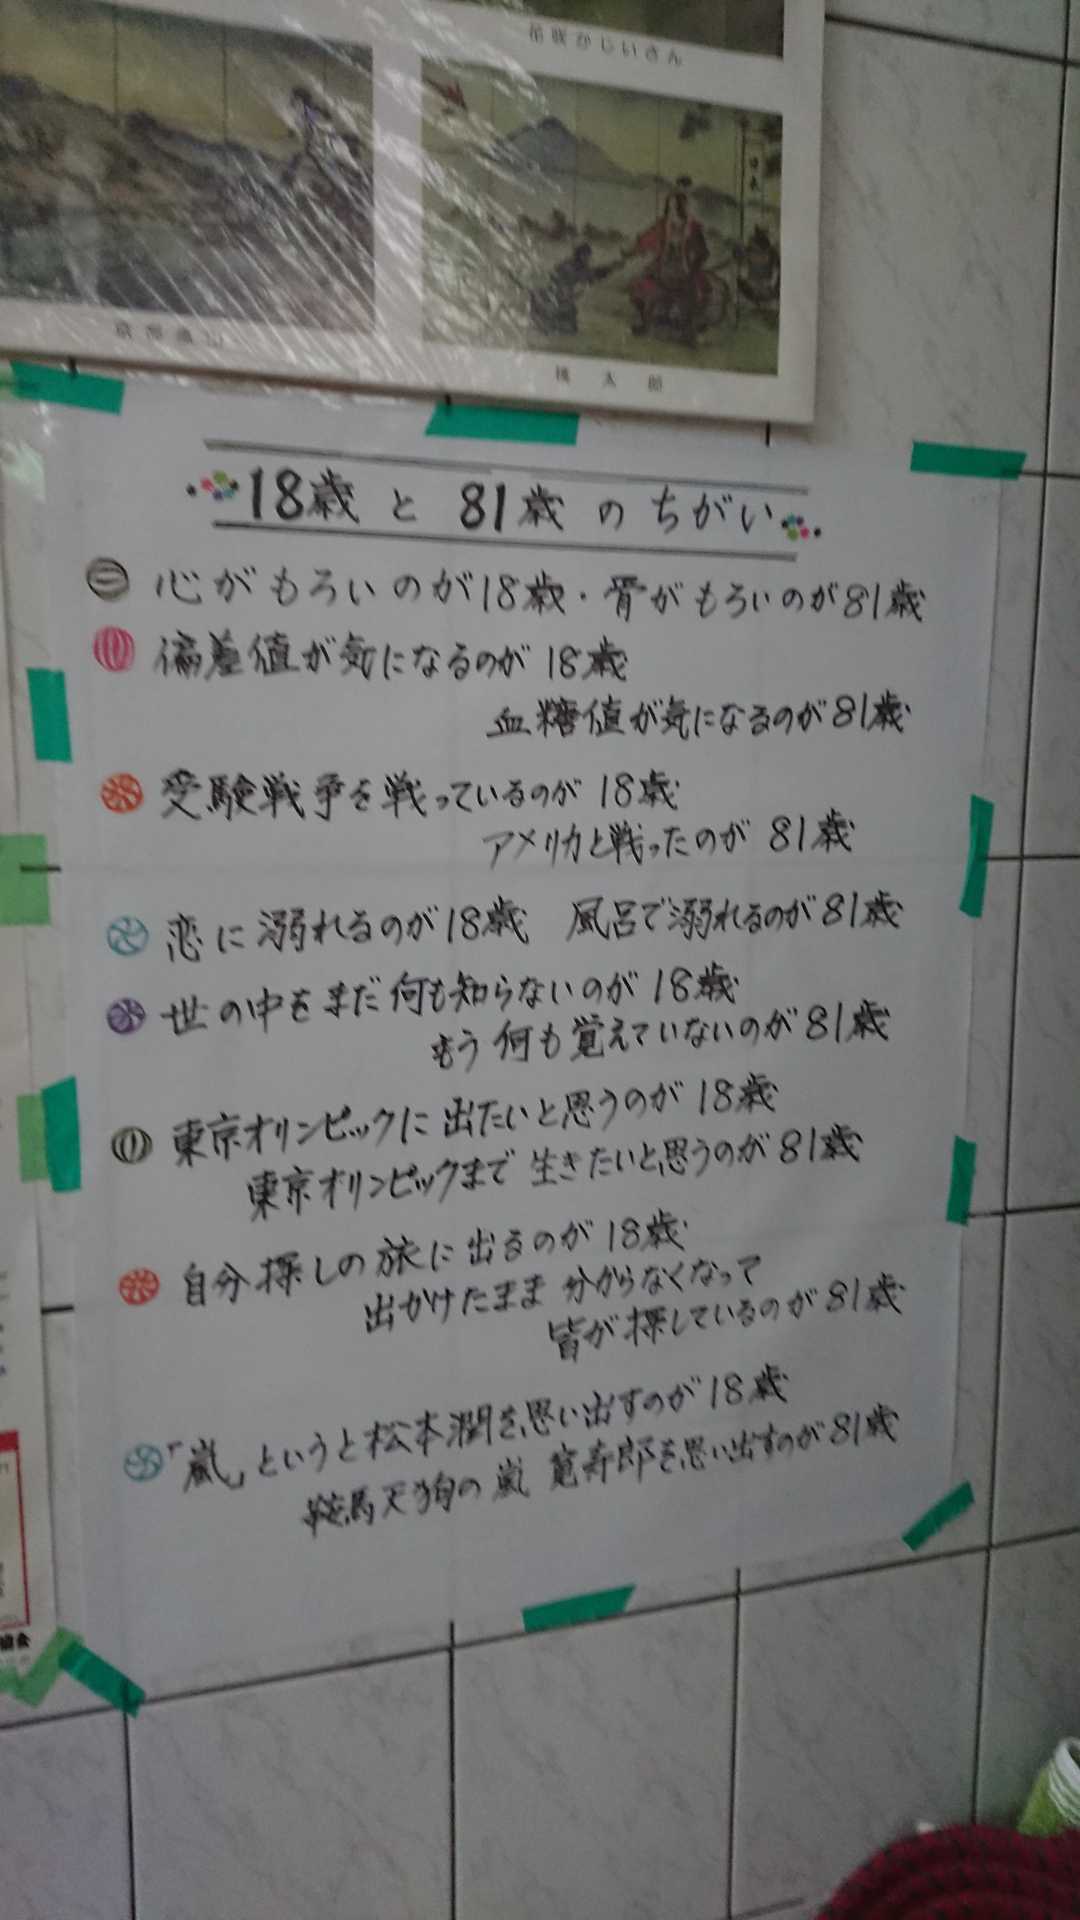 花咲かじいさん
日本一
桃太郎
18歳と81歳のちがい
心がもろいのが18歳・骨がもろいのが81歳
偏差値が気になるのが18歳
血糖値が気になるのが81歳
受験戦争を戦っているのが18歳
アメリカと戦ったのが81歳
恋に溺れるのが18歳 風呂で溺れるのが81歳
世の中をまだ何も知らないのが18歳
もう何も覚えていないのが81歳
東京オリンピックに出たいと思うのが18歳
東京オリンピックまで生きたいと思うのが81歳
自分探しの旅に出るのが18歳
出かけたまま分からなくなって
皆が探しているのが81歳
「嵐」というと松本潤を思い出すのが18歳
鞍馬天狗の嵐 寛寿郎を思い出すのが81歳
協会